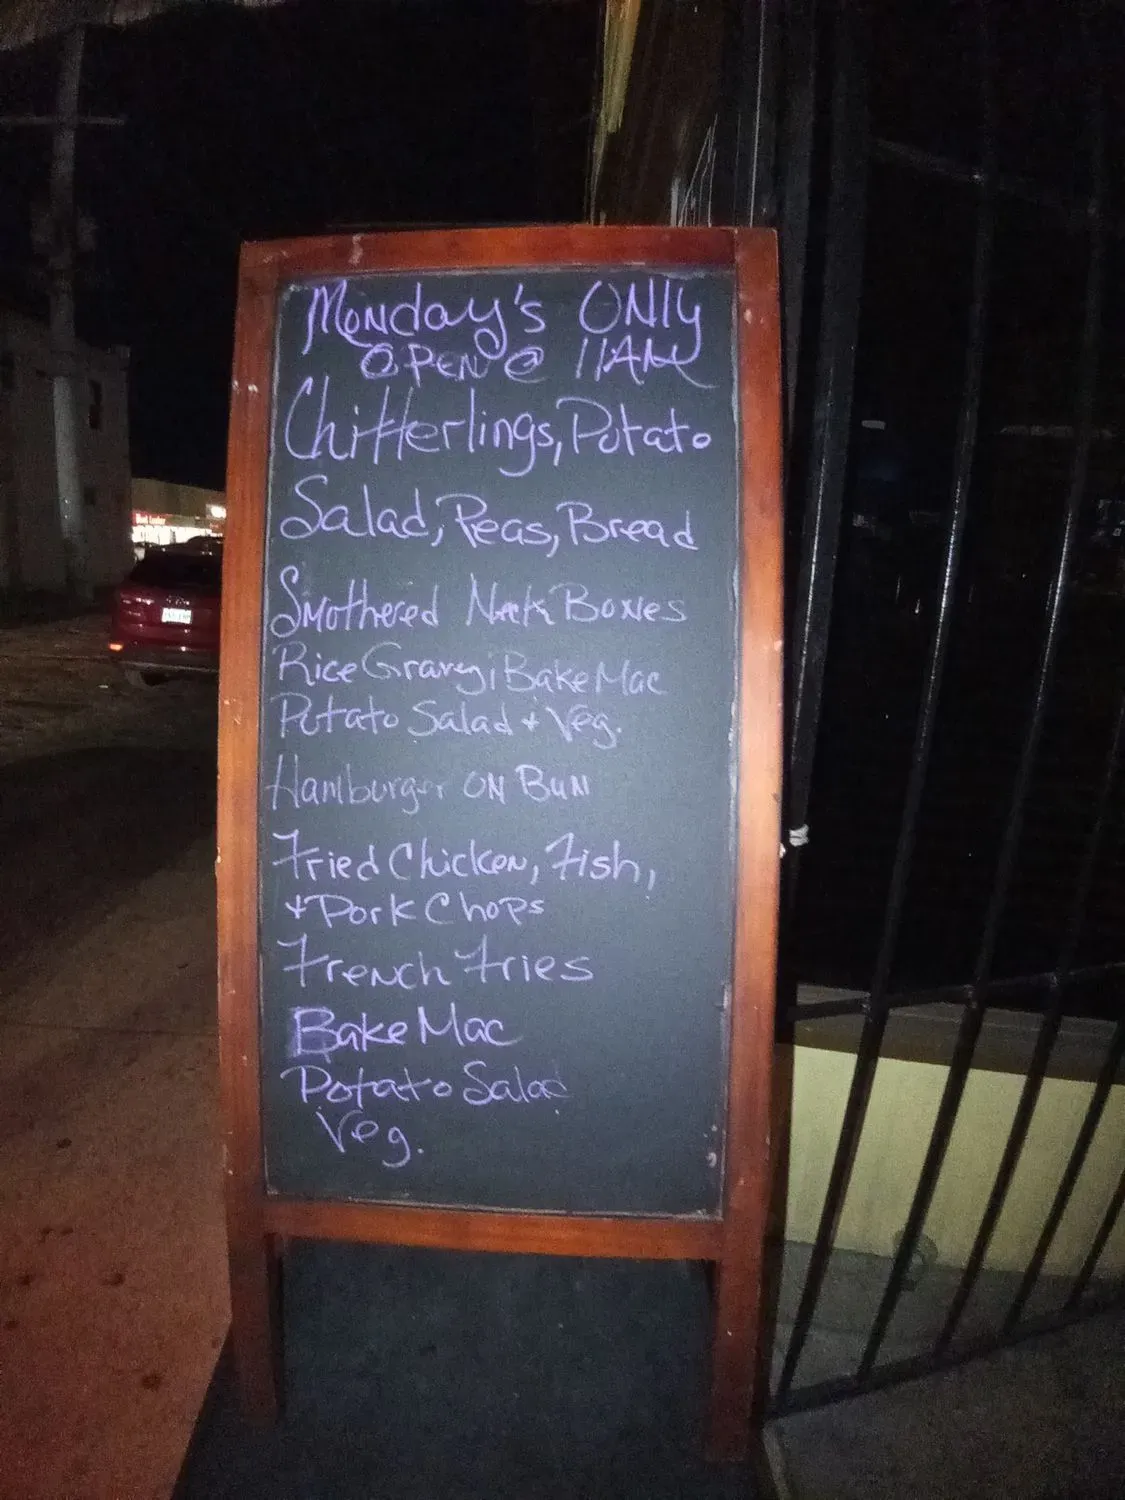 Monday's ONLY
OPEN @ 11AM
Chitterlings, Potato
Salad, Peas, Bread
Smothered Neck Bones
Rice Gravy, Bake Mac
Potato Salad + Veg.
Hamburger ON BUN
Fried Chicken, Fish,
+ Pork Chops
French Fries
Bake Mac
Potato Salad
Veg.